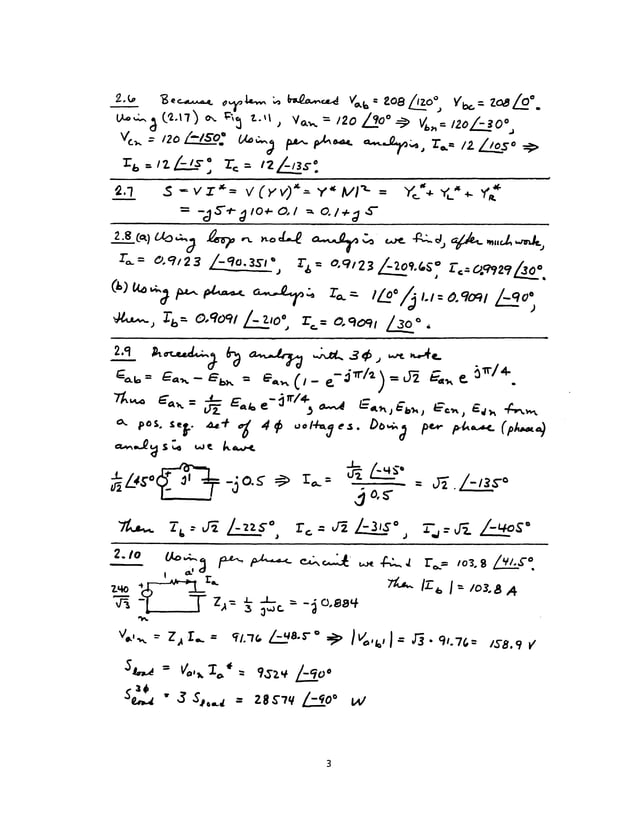 2.6 Because system is balanced Vab = 208 /120°, Vbc = 208 /0°.
Using (2.17) or Fig 2.11, Van = 120 /90° ⇒ Vbn = 120 /-30°,
Vcn = 120 /-150°. Using per phase analysis, Ia = 12 /105° ⇒
Ib = 12 /-15°, Ic = 12 /-135°.
2.7 S = VI* = V(YV)* = Y*|V|² = Yc* + YL* + YR*
= -j5 + j10 + 0.1 = 0.1 + j5
2.8 (a) Using loop or nodal analysis we find, after much work,
Ia = 0.9123 /-90.351°, Ib = 0.9123 /-209.65°, Ic = 0.9929 /30°.
(b) Using per phase analysis Ia = 1/0°/j1.1 = 0.9091 /-90°,
then, Ib = 0.9091 /-210°, Ic = 0.9091 /30°.
2.9 Proceeding by analogy with 3ϕ, we note
Eab = Ean - Ebn = Ean (1 - e^-jπ/2) = √2 Ean e^jπ/4.
Thus Ean = 1/√2 Eab e^-jπ/4, and Ean, Ebn, Ecn, Edn form
a pos. seq. set of 4ϕ voltages. Doing per phase (phase a)
analysis we have
1/√2 /45° j1 -j0.5 ⇒ Ia = 1/√2 /-45° / j0.5 = √2 /-135°
Then Ib = √2 /-225°, Ic = √2 /-315°, Id = √2 /-405°
2.10 Using per phase circuit we find Ia = 103.8 /41.5°.
Then |Ib| = 103.8 A
240/√3 + - 1 a' Ia n Zλ = 1/3 1/jωC = -j0.884
Va'n = Zλ Ia = 91.76 /-48.5° ⇒ |Va'b'| = √3 · 91.76 = 158.9 V
Sload = Va'n Ia* = 9524 /-90°
Sload^3ϕ = 3 Sload = 28574 /-90° W
3